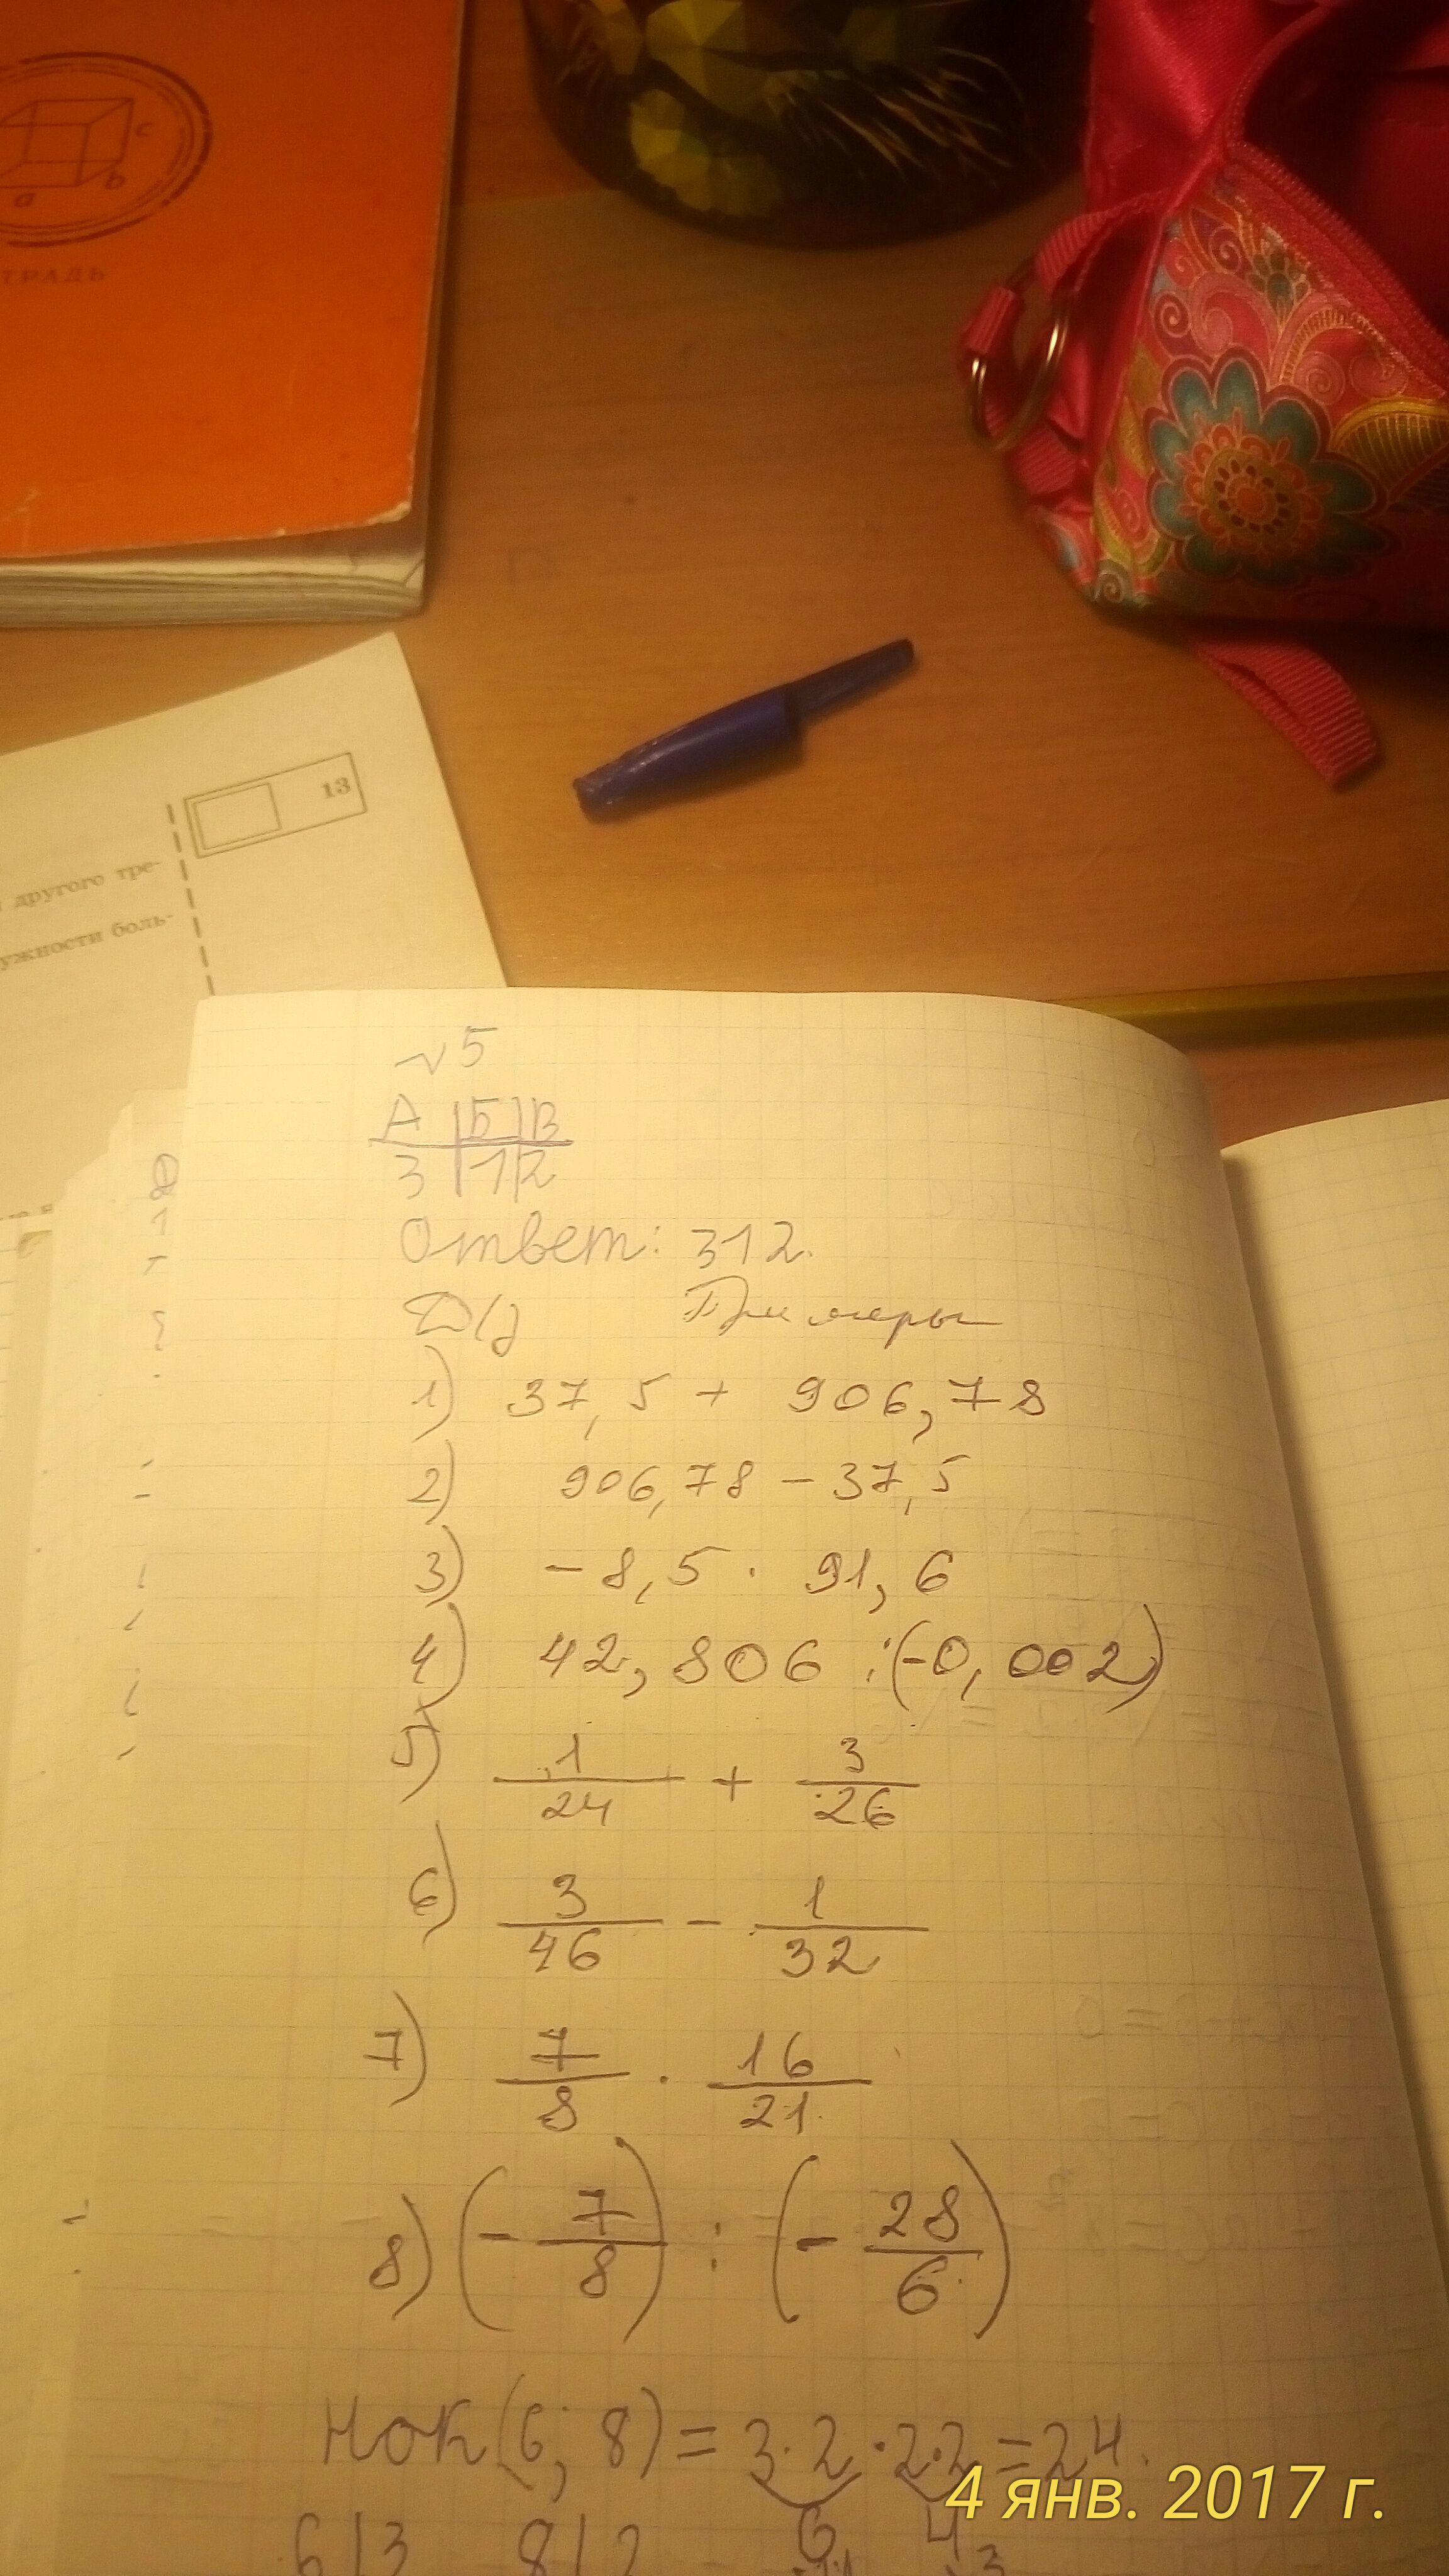 c
a b
ТРАДЬ
13
другого тре-
ужности боль-
√5
А | Б | В
3 | 1 | 2
Ответ: 312.
Д/з Примеры
1) 37,5 + 906,78
2) 906,78 - 37,5
3) - 8,5 · 91,6
4) 42,806 : (-0,002)
5) 1/24 + 3/26
6) 3/46 - 1/32
7) 7/8 · 16/21
8) (- 7/8) : (- 28/6)
НОК(6; 8) = 3·2·2·2 = 24.
6|3 8|2 6 4
4 янв. 2017 г.